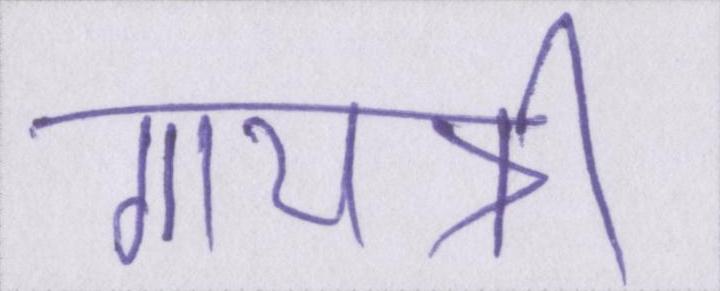 गायत्री